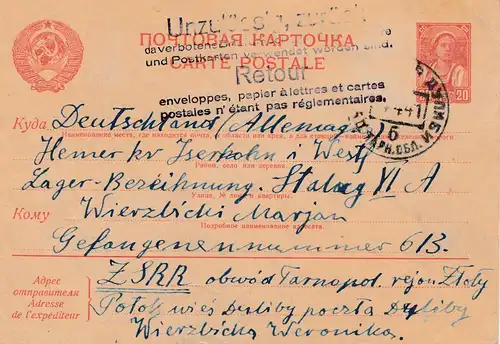 Unzulässig, zurück
ПОЧТОВАЯ КАРТОЧКА
da verbotene
und Postkarten verwendet worden sind.
CARTE POSTALE
Retour
enveloppes, papier à lettres et cartes
postales n'étant pas réglementaires.
20
6
Куда Deutschland Allemagne
Наименование места, где находится почта, и области или края, а для станций
Hemer kr Iserlohn i West
Район, село или деревня.
Lager-Bezeichnung. Stalag VI A
Улица, № дома и квартиры.
Кому Wierzbicki Marjan
Подробное наименование адресата.
Gefangenennummer 613.
Адрес отправителя
Adresse de l'expéditeur
ZSRR obwód Tarnopol. rejon Złoty
Potok wieś Duliby poczta Duliby
Wierzbicka Weronika.